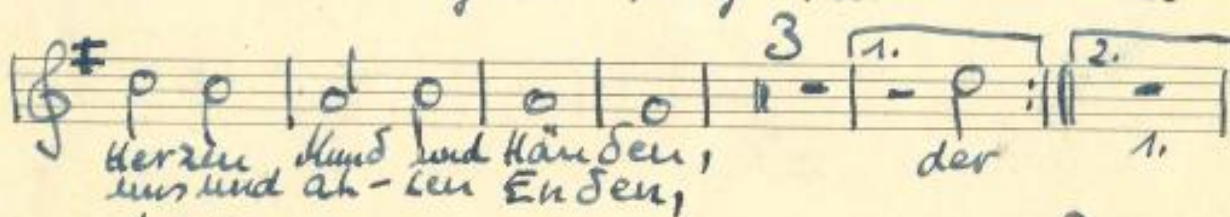 3 1. 2.
Herzen, Mund und Händen, der 1.
uns und al-len Enden,